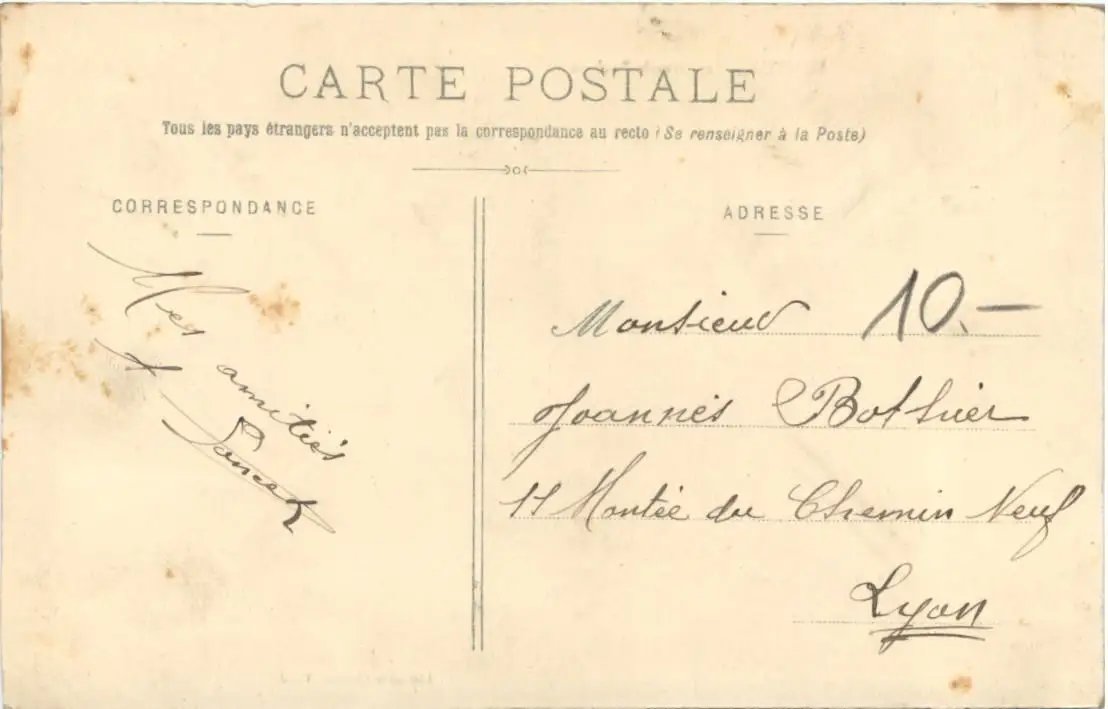 CARTE POSTALE
Tous les pays étrangers n'acceptent pas la correspondance au recto (Se renseigner à la Poste)
CORRESPONDANCE
Mes amitiés
ADRESSE
Monsieur 10.—
Joannès Bothier
11 Montée du Chemin Neuf
Lyon